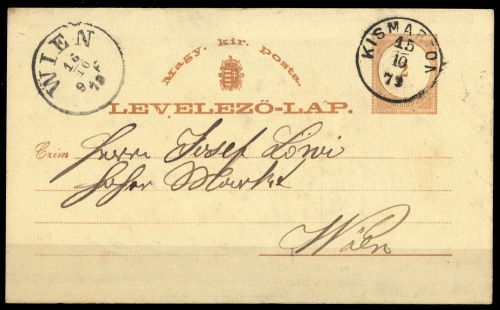 WIEN
15
10
9 F
79
Magy. kir. Posta.
KISMARTON
15
10
79
2
LEVELEZŐ-LAP.
Czim
Herrn Josef Löwi
Hoher Markt
Wien